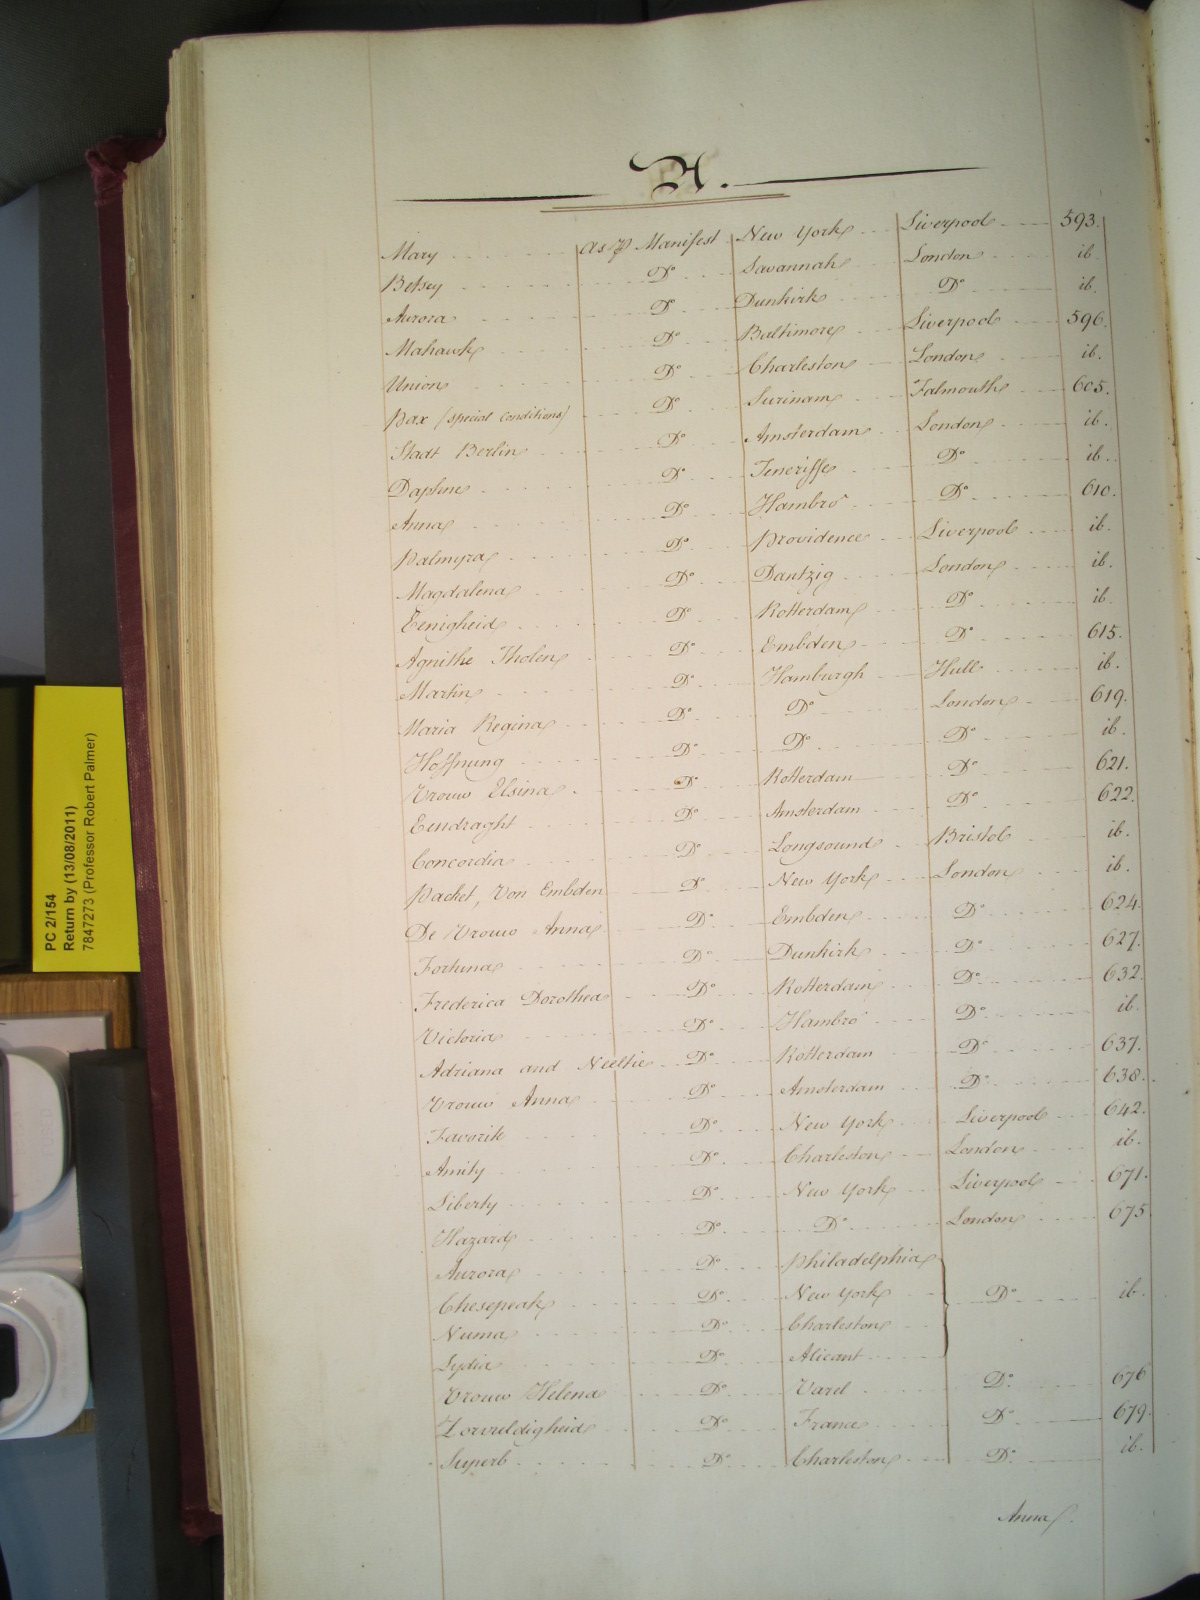 A.
Mary As ₱ Manifest New York Liverpool 593.
Betsey Do Savannah London ib.
Aurora Do Dunkirk Do ib.
Mahawk Do Baltimore Liverpool 596.
Union Do Charleston London ib.
Pax (special conditions) Do Surinam Falmouth 605.
Stadt Berlin Do Amsterdam London ib.
Daphne Do Teneriffe Do ib.
Anna Do Hambro' Do 610.
Palmyra Do Providence Liverpool ib.
Magdalena Do Dantzig London ib.
Eenigheid Do Rotterdam Do ib.
Agnithe Tholen Do Embden Do 615.
Martin Do Hamburgh Hull ib.
Maria Regina Do Do London 619.
Hoffnung Do Do Do ib.
Vrouw Elsina Do Rotterdam Do 621.
Eendraght Do Amsterdam Do 622.
Concordia Do Longsound Bristol ib.
Packet, Von Embden Do New York London ib.
De Vrouw Anna Do Embden Do 624.
Fortuna Do Dunkirk Do 627.
Frederica Dorothea Do Rotterdam Do 632.
Victoria Do Hambro' Do ib.
Adriana and Neeltie Do Rotterdam Do 637.
Vrouw Anna Do Amsterdam Do 638.
Favorite Do New York Liverpool 642.
Amity Do Charleston London ib.
Liberty Do New York Liverpool 671.
Hazard Do Do London 675.
Aurora Do Philadelphia
Chesepeak Do New York Do ib.
Numa Do Charleston
Lydia Do Alicant
Vrouw Helena Do Varel Do 676
Zorvuldigheid Do France Do 679.
Superb Do Charleston Do ib.
Anna
PC 2/154
Return by (13/08/2011)
7847273 (Professor Robert Palmer)